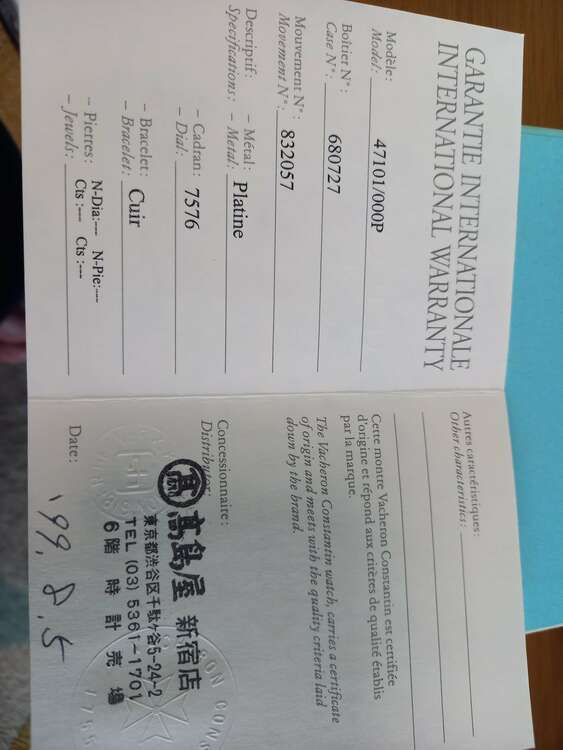 GARANTIE INTERNATIONALE
INTERNATIONAL WARRANTY
Modèle:
Model: 47101/000P
Boîtier N°:
Case N°: 680727
Mouvement N°:
Movement N°: 832057
Descriptif: – Métal:
Specifications: – Metal: Platine
– Cadran:
– Dial: 7576
– Bracelet:
– Bracelet: Cuir
– Pierres: N-Dia:--- N-Pie:---
– Jewels: Cts :--- Cts :---
Autres caractéristiques:
Other characteristics:
Cette montre Vacheron Constantin est certifiée
d'origine et répond aux critères de qualité établis
par la marque.
The Vacheron Constantin watch, carries a certificate
of origin and meets with the quality criteria laid
down by the brand.
Concessionnaire:
Distributor:
髙島屋 新宿店
東京都渋谷区千駄ケ谷5-24-2
TEL (03) 5361-1701
6階 時計売場
Date: '99. 8. 5